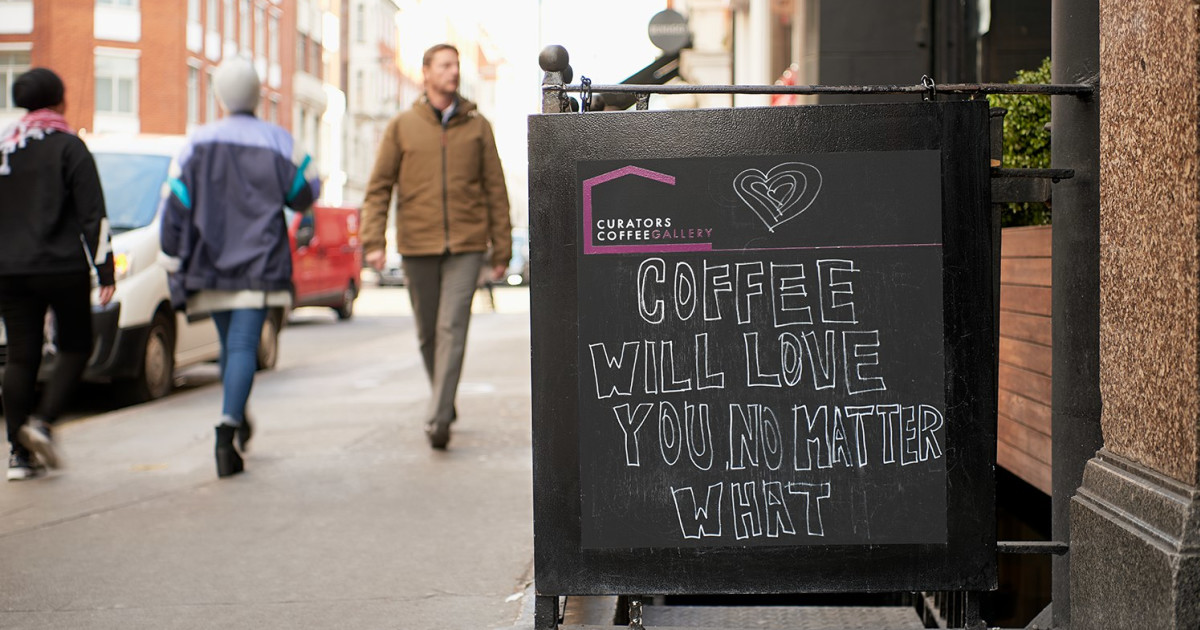 CURATORS
COFFEEGALLERY
COFFEE
WILL LOVE
YOU NO MATTER
WHAT